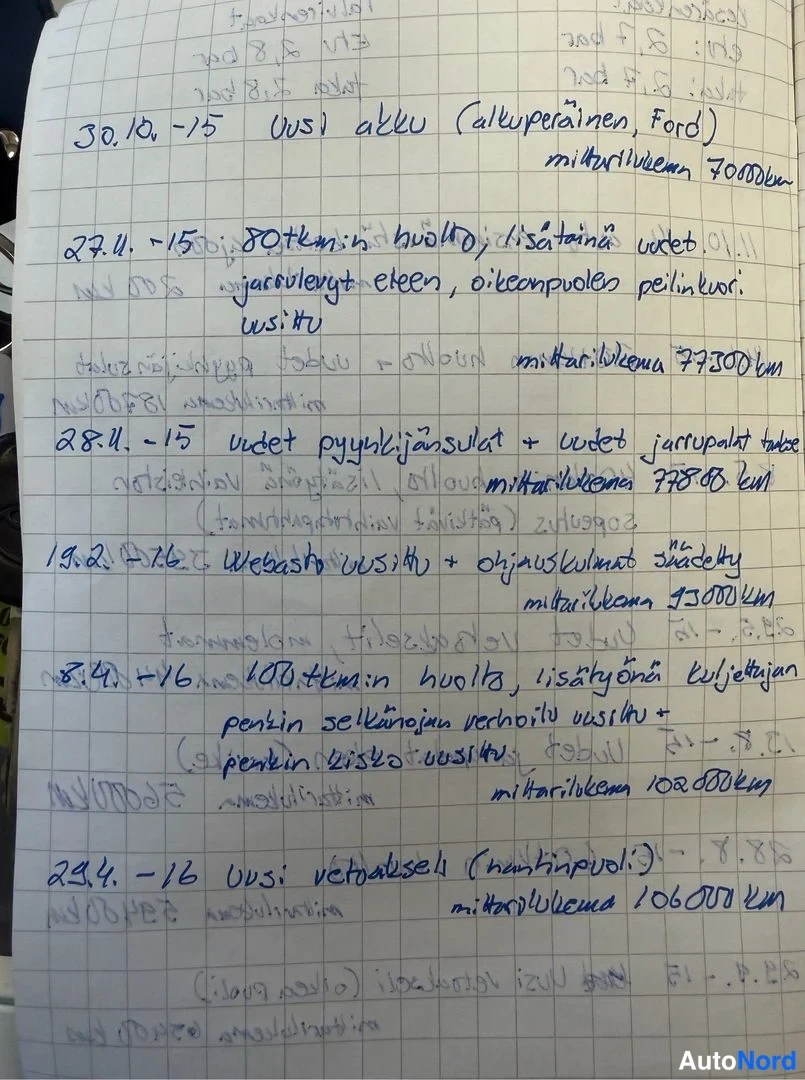 30.10. -15 Uusi akku (alkuperäinen, Ford)
mittarilukema 70000km
27.11. -15 80tkm:n huolto, lisätöinä uudet
jarrulevyt eteen, oikeanpuolen peilinkuori
uusittu
mittarilukema 77300km
28.11. -15 uudet pyyhkijänsulat + uudet jarrupalat taakse
mittarilukema 77800 km
19.2. -16 Webasto uusittu + ohjauskulmat säädetty
mittarilukema 93000km
8.4. -16 100tkm:n huolto, lisätyönä kuljettajan
penkin selkänojan verhoilu uusittu +
penkin kisko uusittu
mittarilukema 102000km
29.4. -16 Uusi vetoakseli (kartinpuoli)
mittarilukema 106000 km
AutoNord